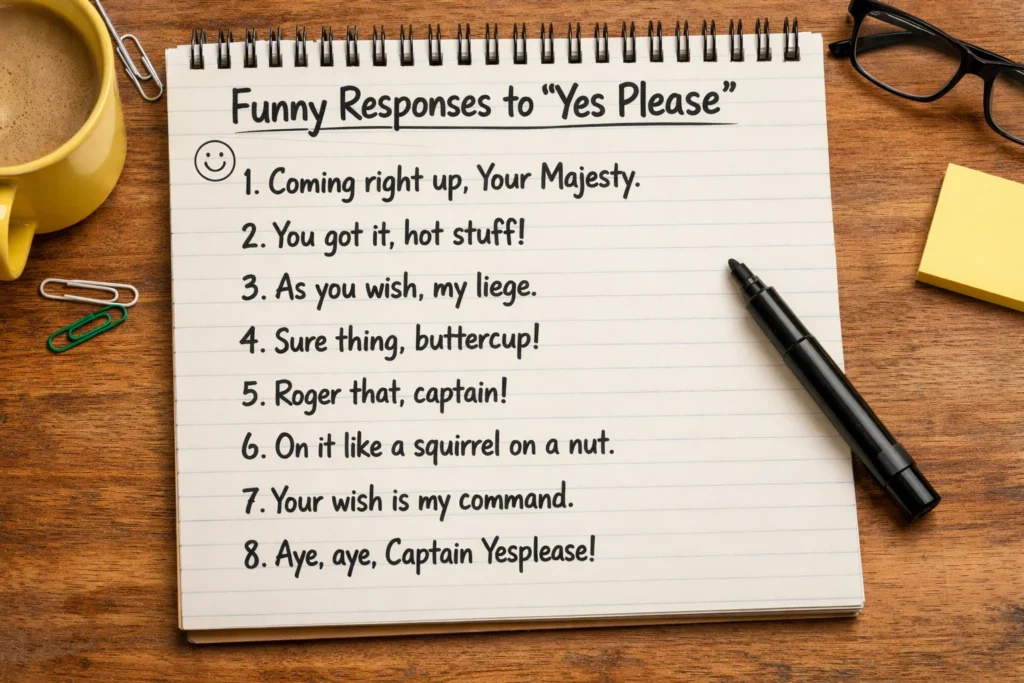 Funny Responses to “Yes Please”
1. Coming right up, Your Majesty.
2. You got it, hot stuff!
3. As you wish, my liege.
4. Sure thing, buttercup!
5. Roger that, captain!
6. On it like a squirrel on a nut.
7. Your wish is my command.
8. Aye, aye, Captain Yesplease!